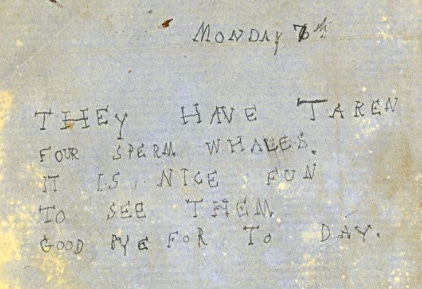 Monday 7th
THEy HAVE TAKEN
FOUR SPERM WHALES.
IT IS NICE FUN
TO SEE THEM
GOOD BYE FOR TO DAY.